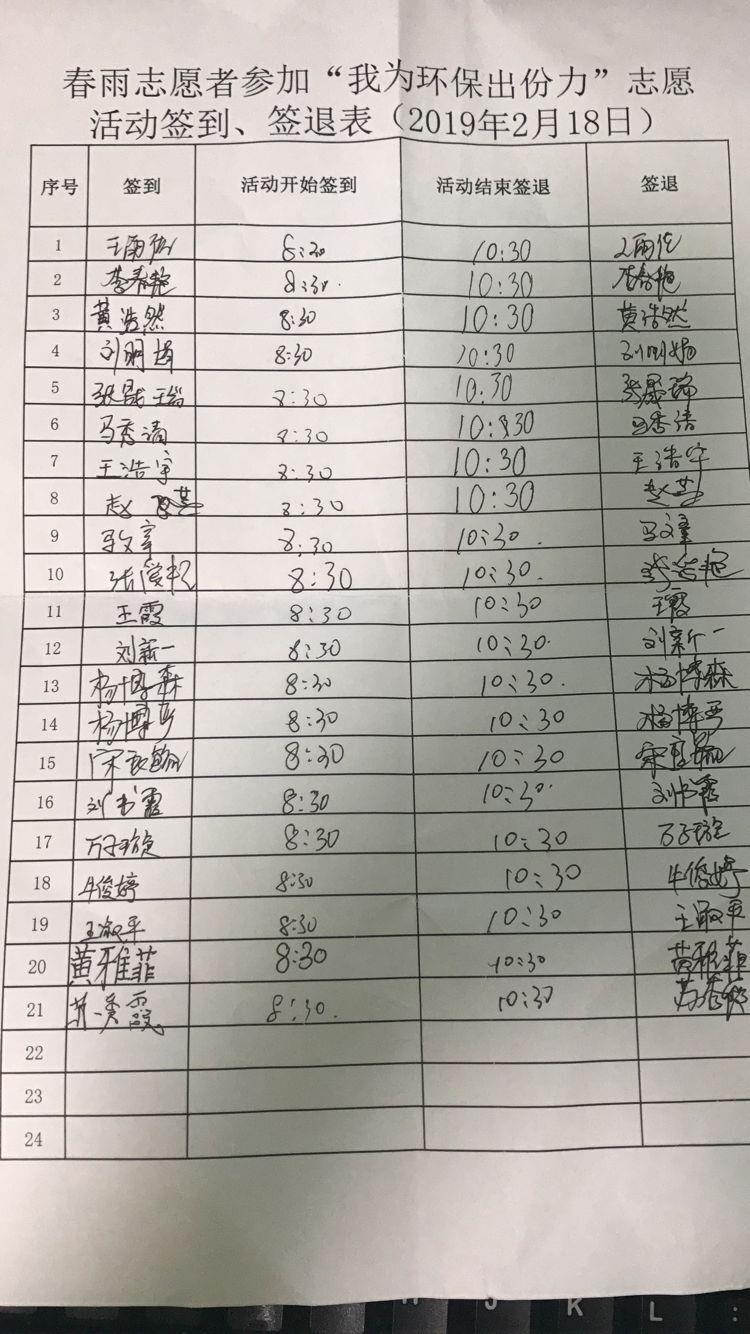 春雨志愿者参加“我为环保出份力”志愿
活动签到、签退表（2019年2月18日）
序号 签到 活动开始签到 活动结束签退 签退
1 8:30 10:30
2 李春艳 8:30 10:30 李春艳
3 黄浩然 8:30 10:30 黄浩然
4 刘明 8:30 10:30 刘明
5 张晟瑞 8:30 10:30 张晟瑞
6 马秀清 8:30 10:30 马秀清
7 王浩宇 8:30 10:30 王浩宇
8 赵 8:30 10:30 赵
9 8:30 10:30
10 张 艳 8:30 10:30 张 艳
11 王霞 8:30 10:30 王霞
12 刘新一 8:30 10:30 刘新一
13 杨博森 8:30 10:30 杨博森
14 杨博 8:30 10:30 杨博
15 宋 8:30 10:30 宋
16 刘书霞 8:30 10:30 刘书霞
17 万子璇 8:30 10:30 万子璇
18 牛俊婷 8:30 10:30 牛俊婷
19 王淑平 8:30 10:30 王淑平
20 黄雅菲 8:30 10:30 黄雅菲
21 8:30 10:30
22
23
24
J K L